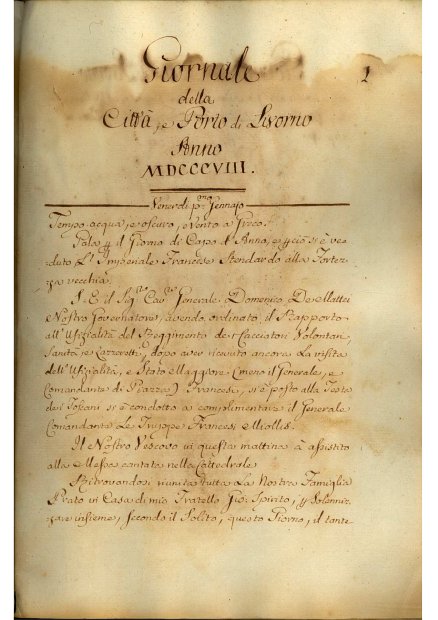 Giornale
1
della
Città, e Porto di Livorno
Anno
MDCCCVIII.
Venerdi pmo Gennajo
Tempo acqua, e oscuro, e Vento a Sirоco.
Gala p il Giorno di Capo d'Anno, e p ciò si è ve-
duto L'Imperiale Francese Stendardo alla Fortez-
za vecchia.
S. E. il Sigr Cavre Generale Domenico De Mattei
Nostro Governatore, avendo ordinato il Rapporto
all'Ufizialità del Reggimento de' Cacciatori Volontari,
Sanità, e Lazzeretti, dopo aver ricevuto ancora La visita
dell'Ufizialità, e Stato Maggiore (meno il Generale, e
Comandante di Piazza) Francesi, si è posto alla Testa
dei Toscani si è condotto a complimentare il Generale
Comandante Le Truppe Francesi Miollis.
Il Nostro Vescovo in questa mattina à assistito
alla Messa cantata nella Cattedrale
Ritrovandosi riunita tutta La Nostra Famiglia
Prato in Casa di mio Fratello Gio: Spirito, p Solenniz-
zare insieme, secondo il Solito, questo Giorno, il tante